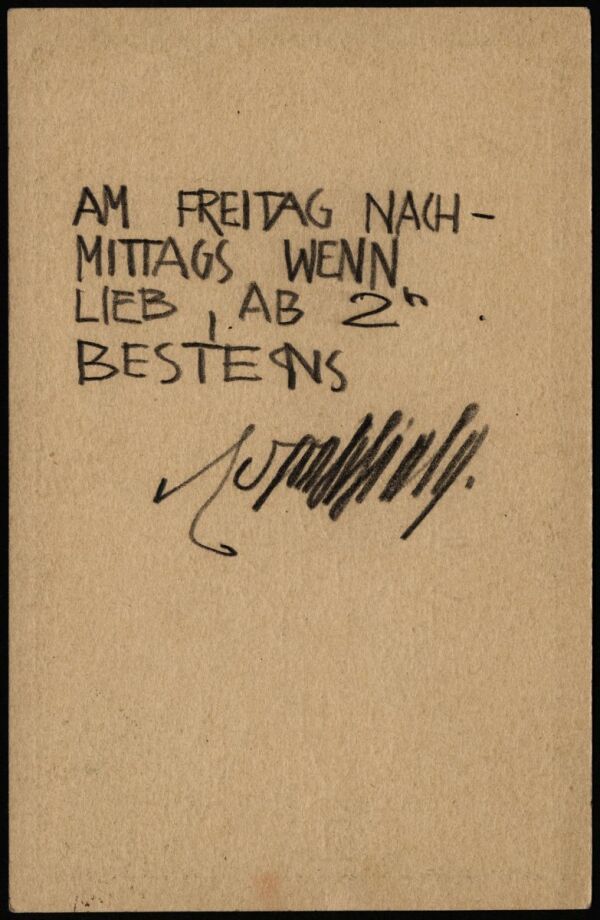 AM FREITAG NACH-
MITTAGS WENN
LIEB, AB 2h.
BESTENS